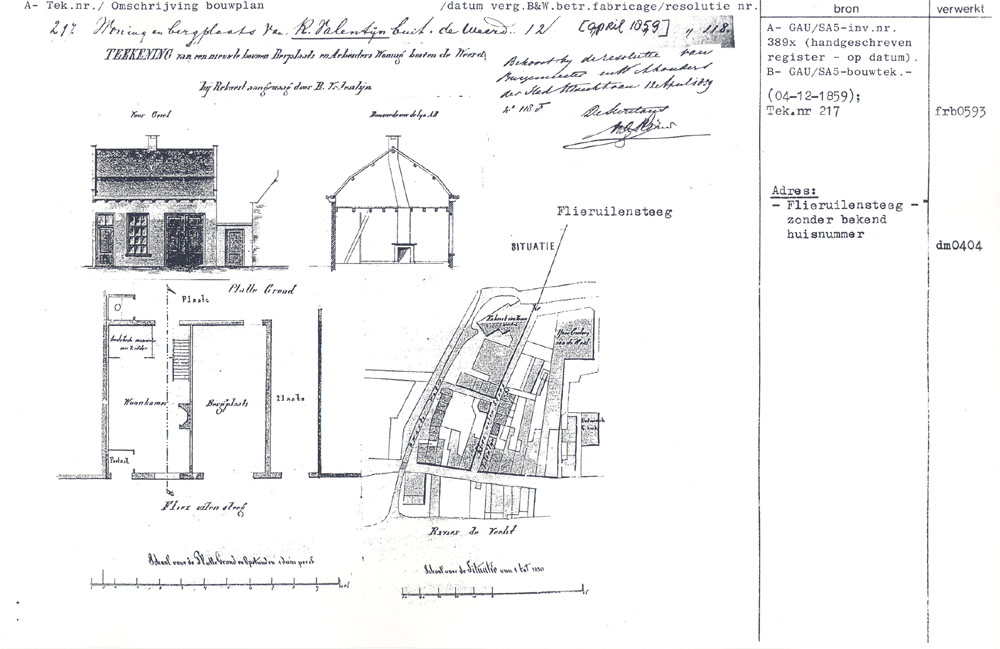 A- Tek.nr./ Omschrijving bouwplan /datum verg.B&W.betr.fabricage/resolutie nr.
bron
verwerkt
217 Woning en bergplaats van R. Valentijn buit. de Weerd. 12 [april 1859] " 118.
TEEKENING van een nieuw te bouwen Bergplaats en Arbeiders Woning buiten de Weerd
Bij Rekwest aangevraagd door R. Valentijn
Behoort bij de resolutie van
Burgemeester en Wethouders
der Stad Utrecht van 12 April 1859
No 118
De Secretaris
A- GAU/SA5-inv.nr.
389x (handgeschreven
register - op datum).
B- GAU/SA5-bouwtek.-
(04-12-1859);
Tek.nr 217
frb0593
Adres:
- Flieruilensteeg -
zonder bekend
huisnummer
dm0404
Voor Gevel
Doorsnede over de lyn A.B
Flieruilensteeg
SITUATIE
Platte Grond
Plaats
Woonkamer
Bergplaats
Plaats
Portaal
Flier uilen steeg
Rivier de Vecht
Schaal voor de Platte Grond en Opstanden 1 duim per el
Schaal voor de Situatie van 1 tot 1250